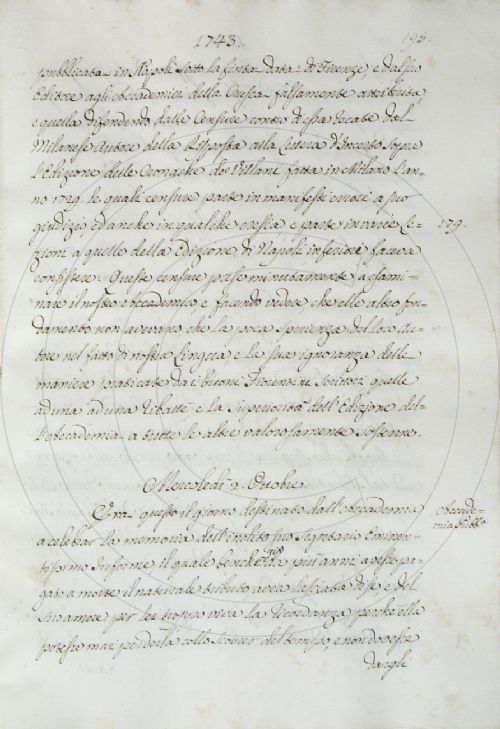 1743. 193.
pubblicata in Napoli sotto la finta data di Firenze, e dal suo
Editore agli Accademici della Crusca falsamente attribuita,
e quella difendendo dalle Censure contro di essa recate dal
Milanese Autore della Risposta alla Lettera d'Incerto sopra
l'Edizione delle Cronache dei Villani fatta in Milano l'an-
no 1729. le quali censure parte in manifesti errori a suo
giudizio, ed anche in qualche eresia e parte in varie Le-
zioni a quelle della Edizione di Napoli inferiori faceva
179.
consistere. Queste censure prese minutamente a esami-
nare il nostro Accademico, e facendo vedere, che elle altro fon-
damento non avevano che la poca sperienza del loro Au-
tore nel fatto di nostra Lingua, e la sua ignoranza delle
maniere praticate da i buoni Fiorentini Scrittori quelle
ad una ad una ributtò e la Superiorità dell'Edizione del-
l'Accademia a tutte le altre valorosamente sostenne.
Mercoledì 2. Ottobre.
Era questo il giorno destinato dall'Accademia
Accade-
mia Pubb.
a celebrar la memoria dell'inclito suo Segretario Eminen-
tissimo Informe il quale benché più anni avesse pa-
gato a morte il naturale tributo avea lasciata di se, e del
suo amore per lei troppo viva la ricordanza, perché ella
potesse mai perderla collo scorrer del tempo, e non dovesse
dargli